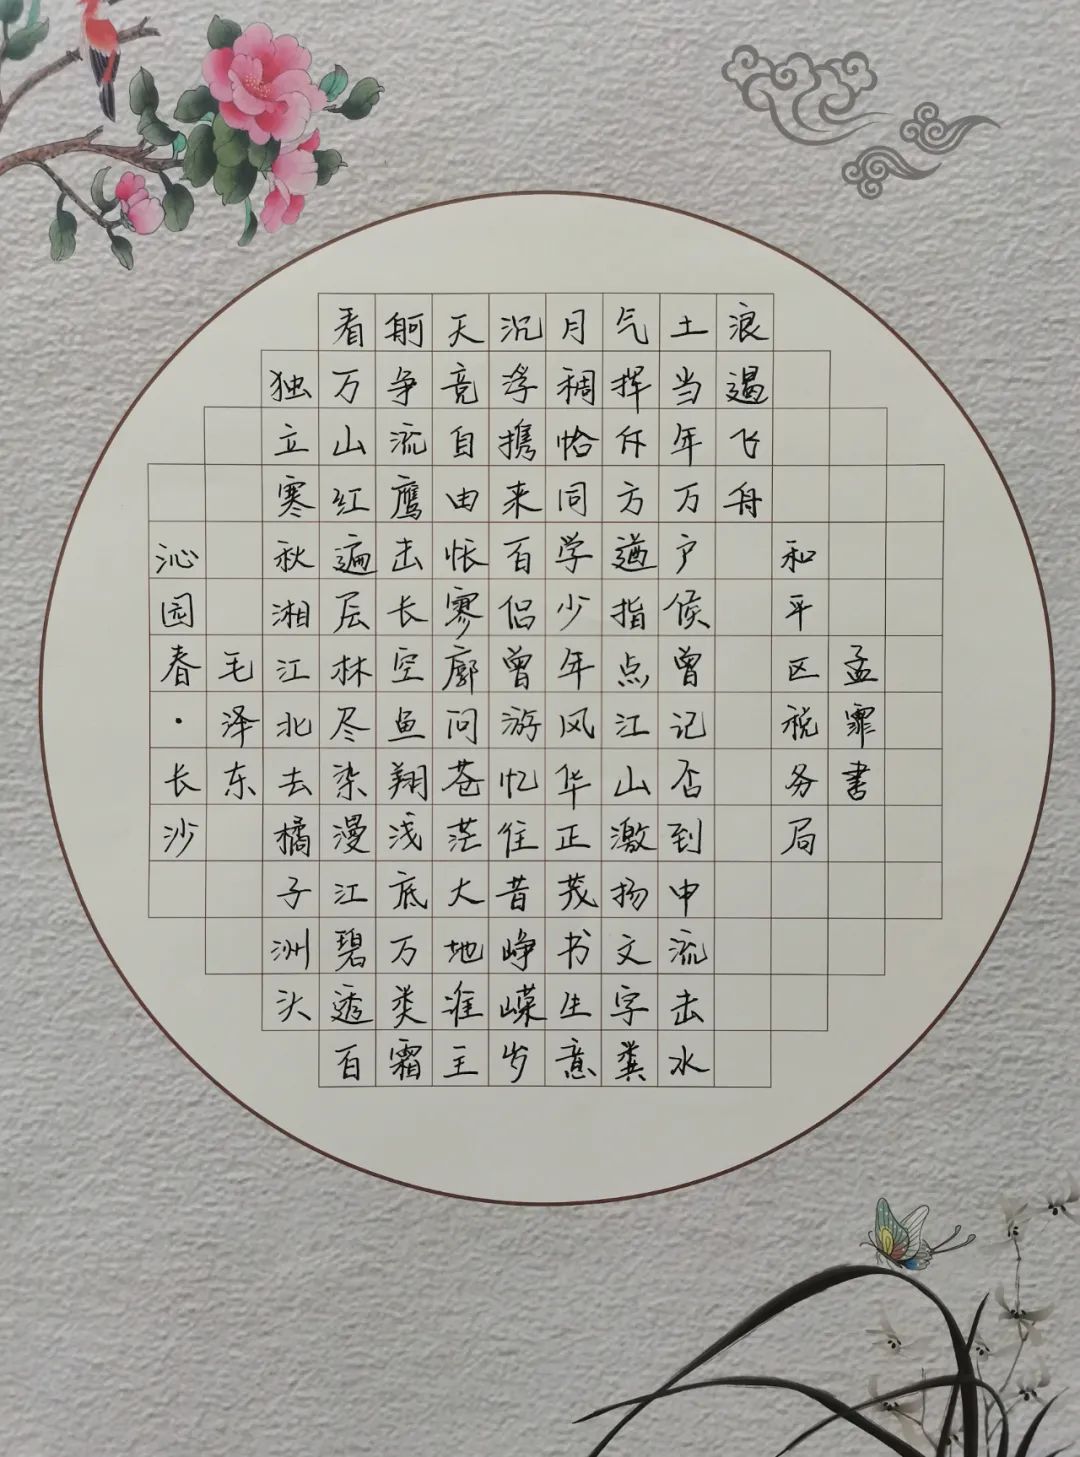 沁园春·长沙
毛泽东
独立寒秋湘江北去橘子洲头
看万山红遍层林尽染漫江碧透百
舸争流鹰击长空鱼翔浅底万类霜
天竞自由怅寥廓问苍茫大地谁主
沉浮携来百侣曾游忆往昔峥嵘岁
月稠恰同学少年风华正茂书生意
气挥斥方遒指点江山激扬文字粪
土当年万户侯曾记否到中流击水
浪遏飞舟
和平区税务局
孟霏書